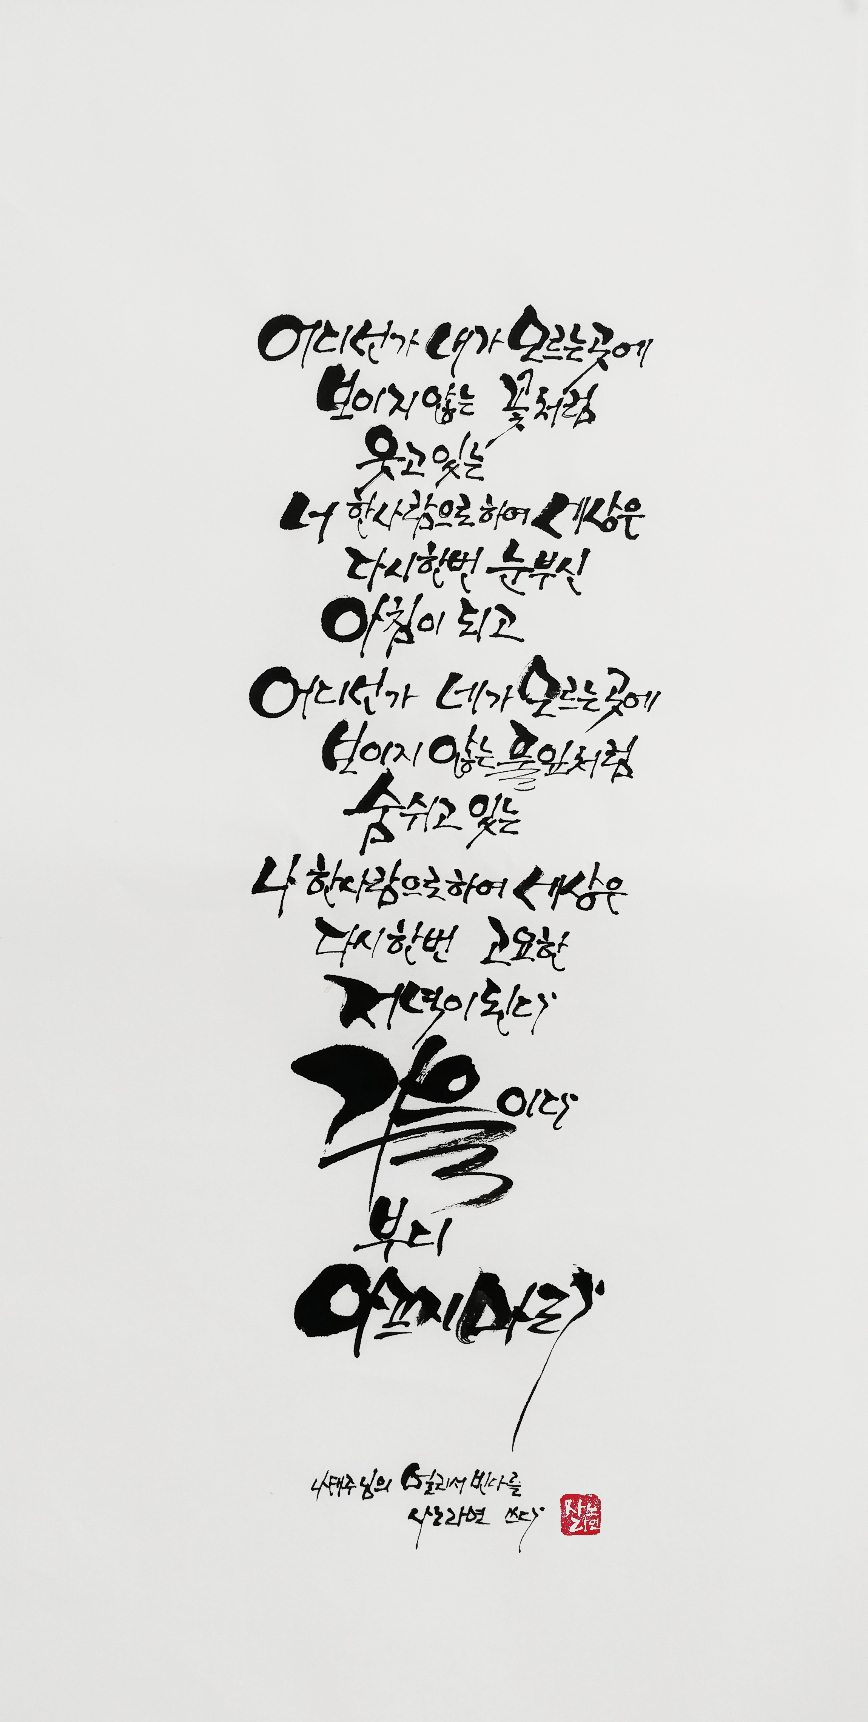 어디선가 내가 모르는 곳에
보이지 않는 꽃처럼
웃고 있는
너 한사람으로 하여 세상은
다시한번 눈부신
아침이 되고
어디선가 네가 모르는 곳에
보이지 않는 풀잎처럼
숨쉬고 있는
나 한사람으로 하여 세상은
다시한번 고요한
저녁이 된다
가을이다
부디
아프지 마라
나태주님의 멀리서 빈다를
쓰다